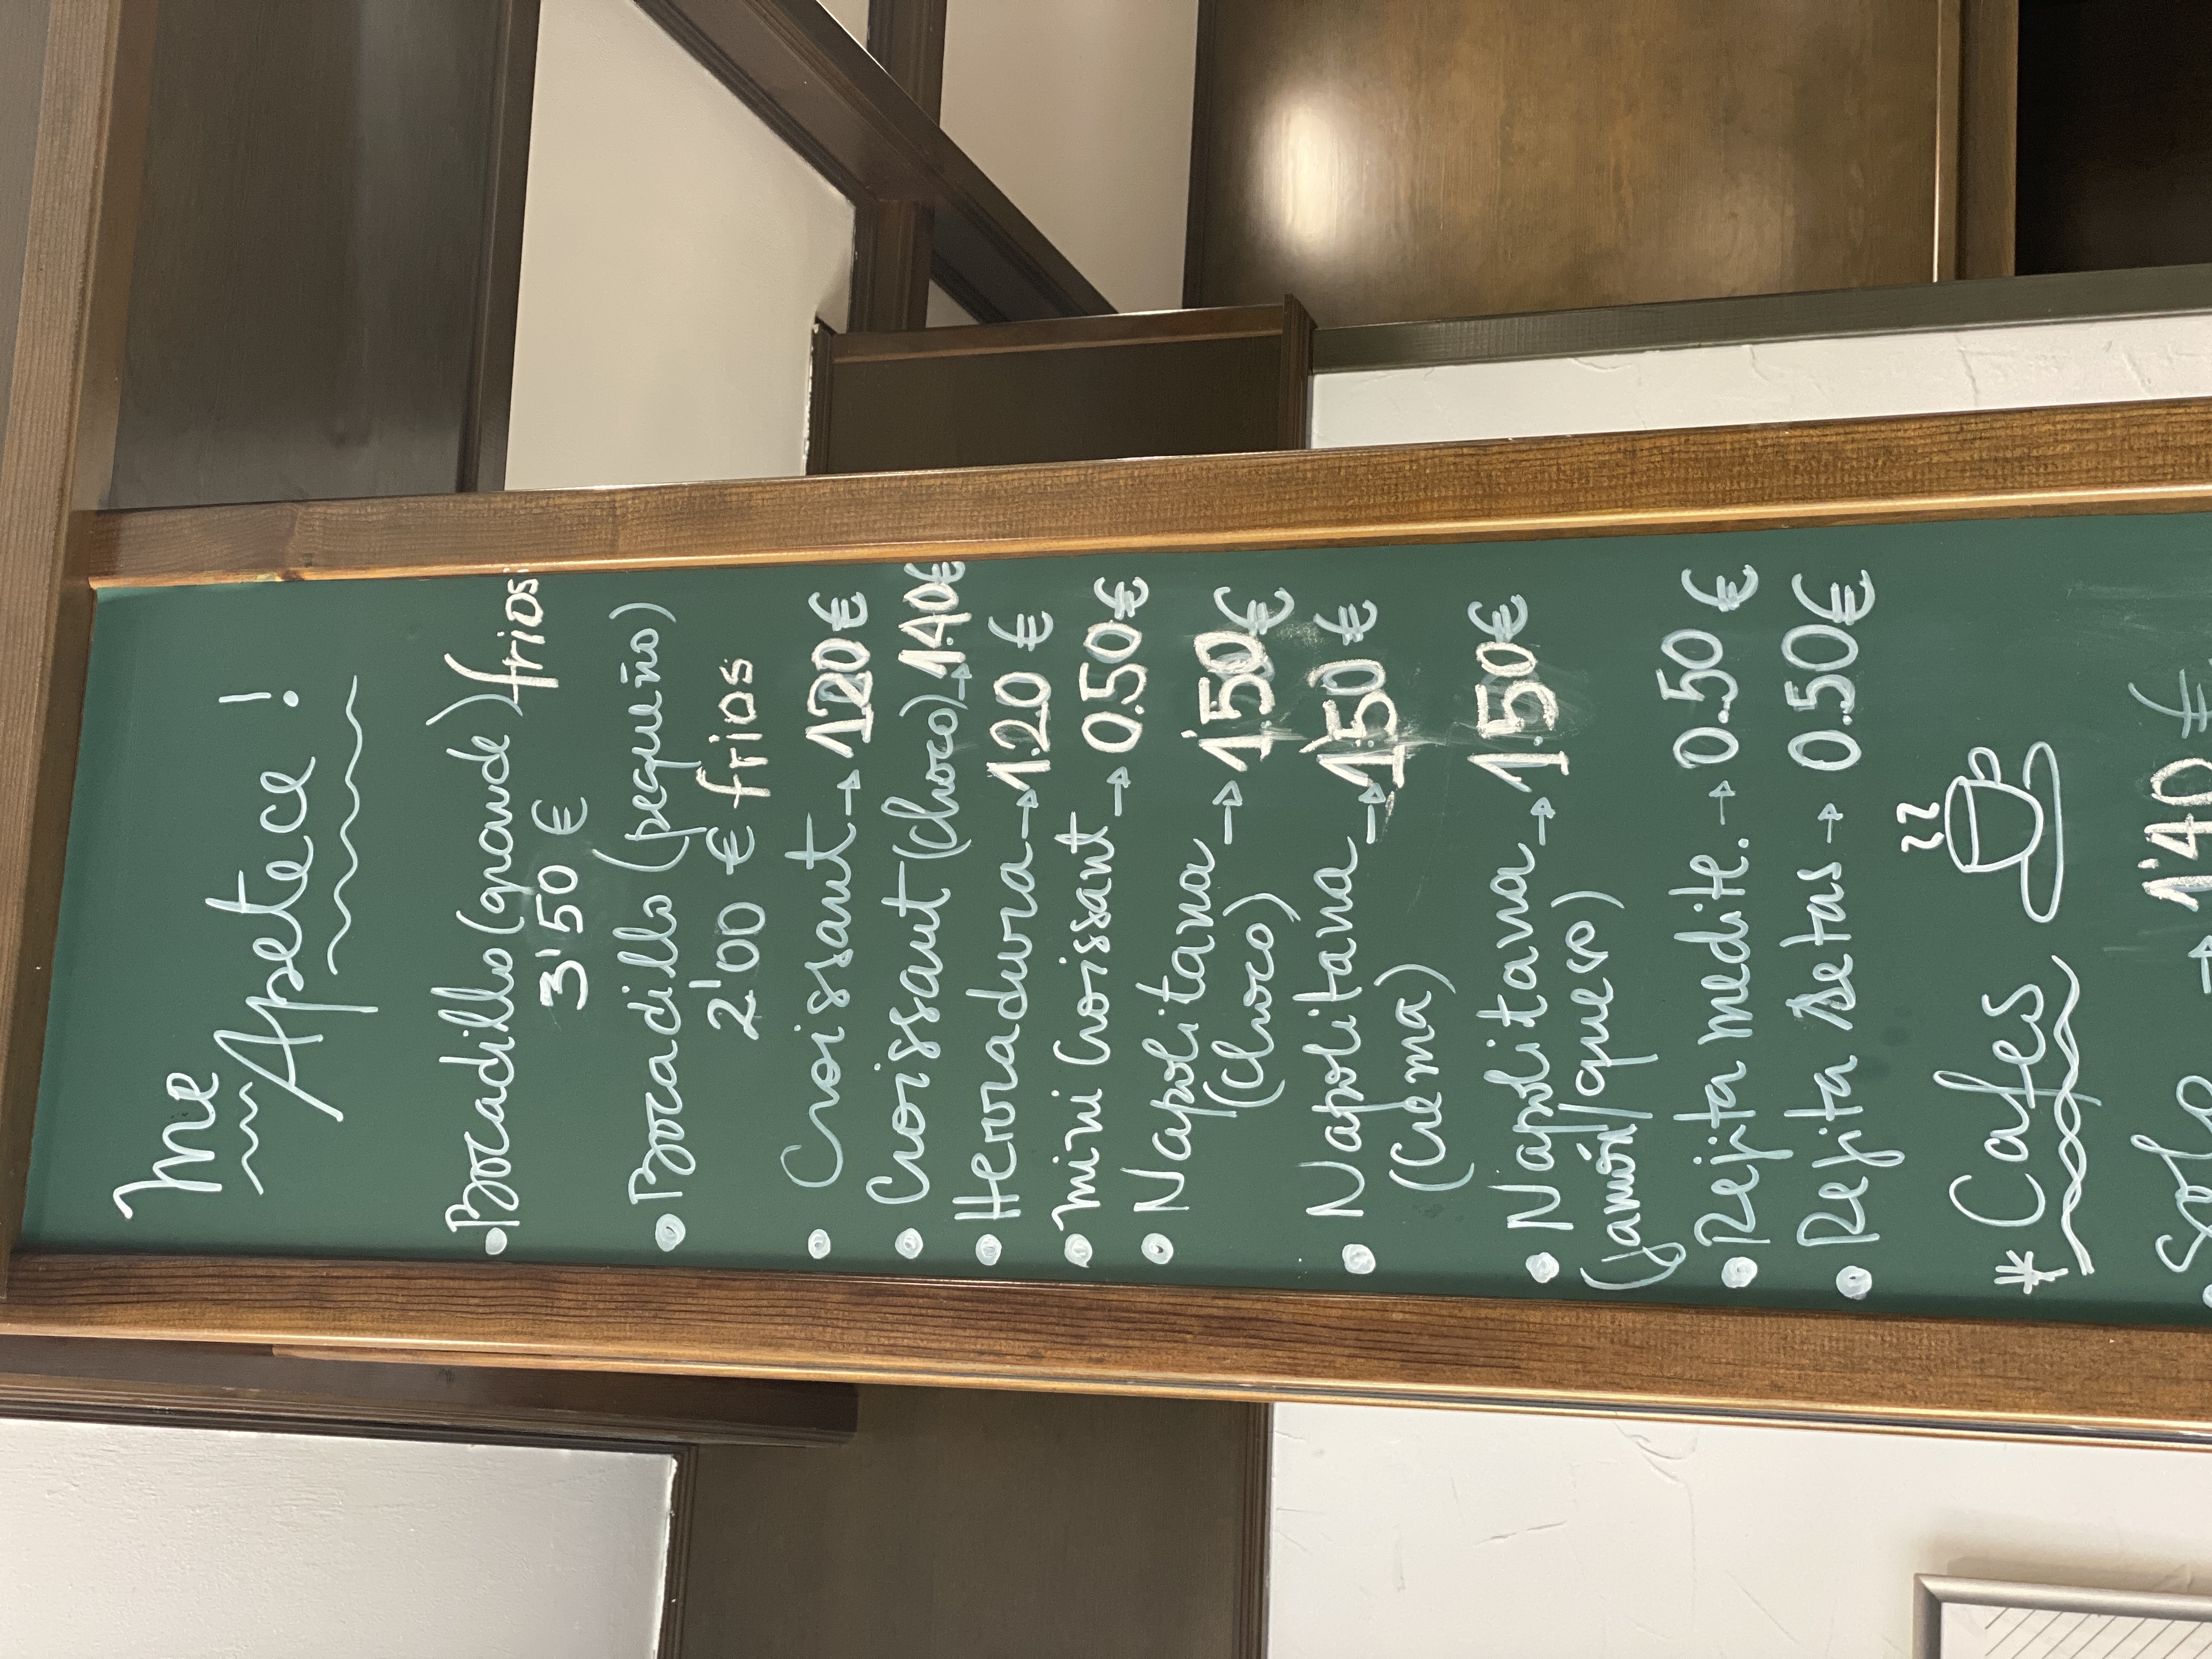 Me
Apetece!
• Bocadillo (grande) frios
3'50 €
• Bocadillo (pequeño)
2'00 € frios
• Croissant → 1.20 €
• Croissant (choco) → 1.40€
• Herradura → 1.20 €
• mini Croissant → 0.50€
• Napolitana → 1.50€
(choco)
• Napolitana → 1.50 €
(crema)
• Napolitana → 1.50€
(jamón/queso)
• Rejita medite. → 0.50 €
• Rejita setas → 0.50€
* Cafes
• Solo → 1'40 €